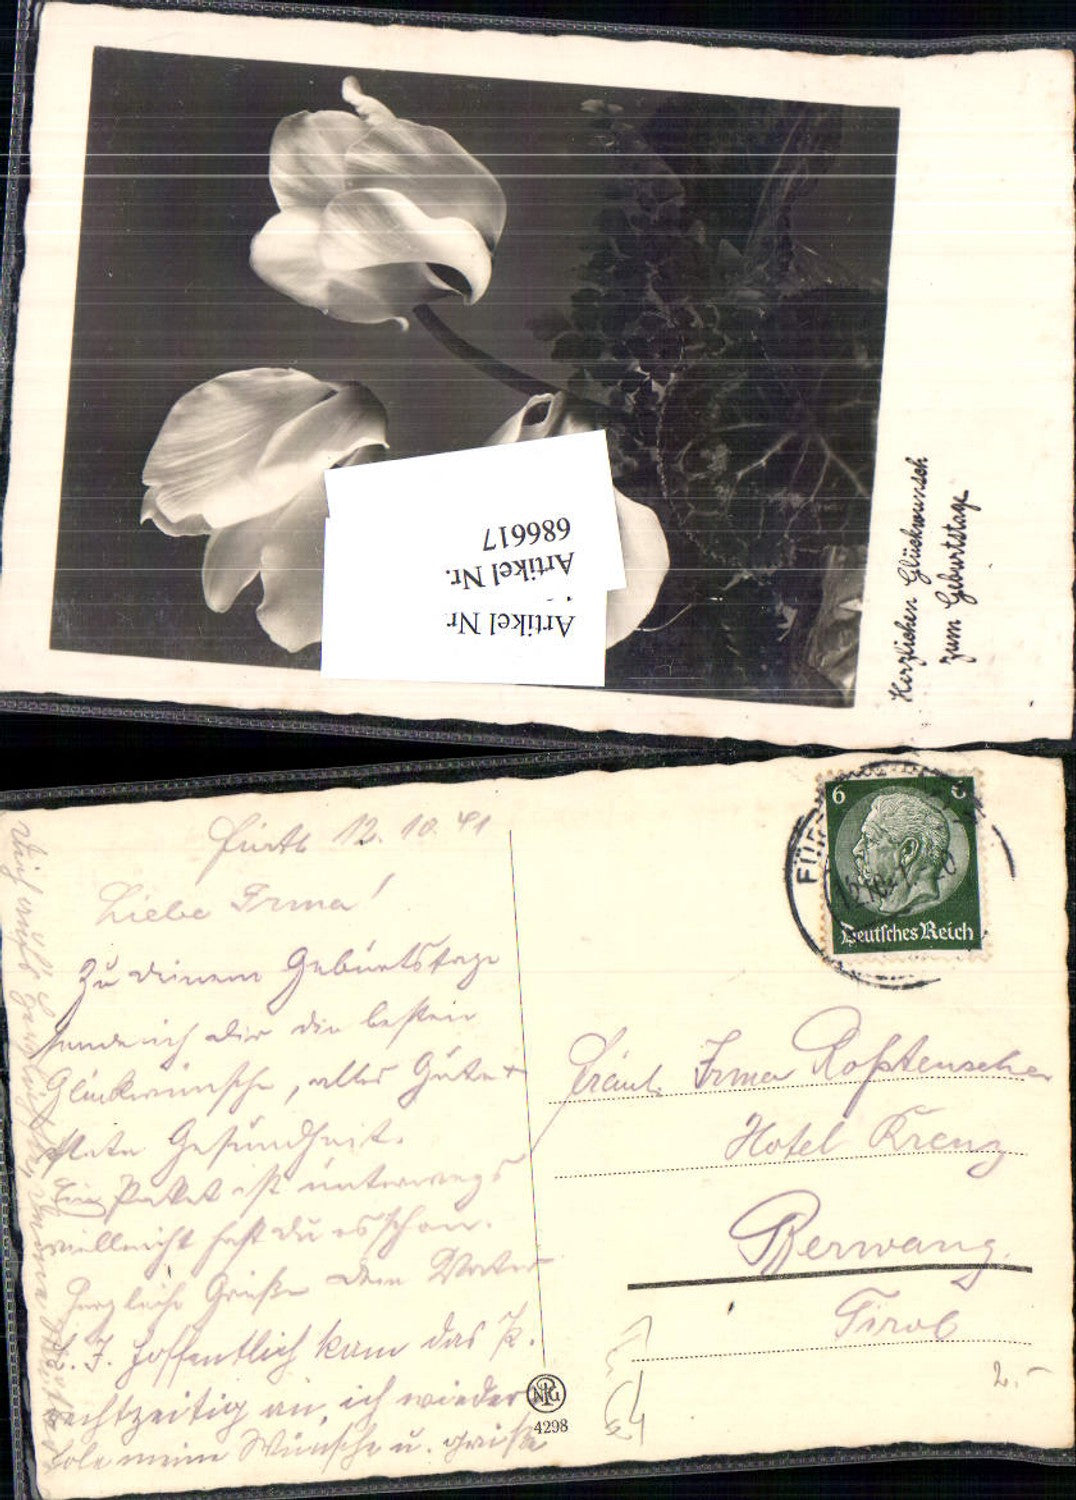 Herzlichen Glückwunsch
zum Geburtstage
Artikel Nr.
686617
Artikel Nr
Fürth 12. 10. 41
Liebe Irma!
Zu deinem Geburtstage
sende ich dir die besten
Glückwünsche, alles Gute +
Gesundheit.
Ein Paket ist unterwegs
vielleicht hast du es schon.
Herzliche Grüße dein Vater
L. I. Hoffentlich kam das P.
rechtzeitig an, ich wieder
hole meine Wünsche u. Grüße
6
Deutsches Reich
FÜR
Fräul. Irma
Hotel Krenz
Berwang
Tirol
2.-
NPG
4298